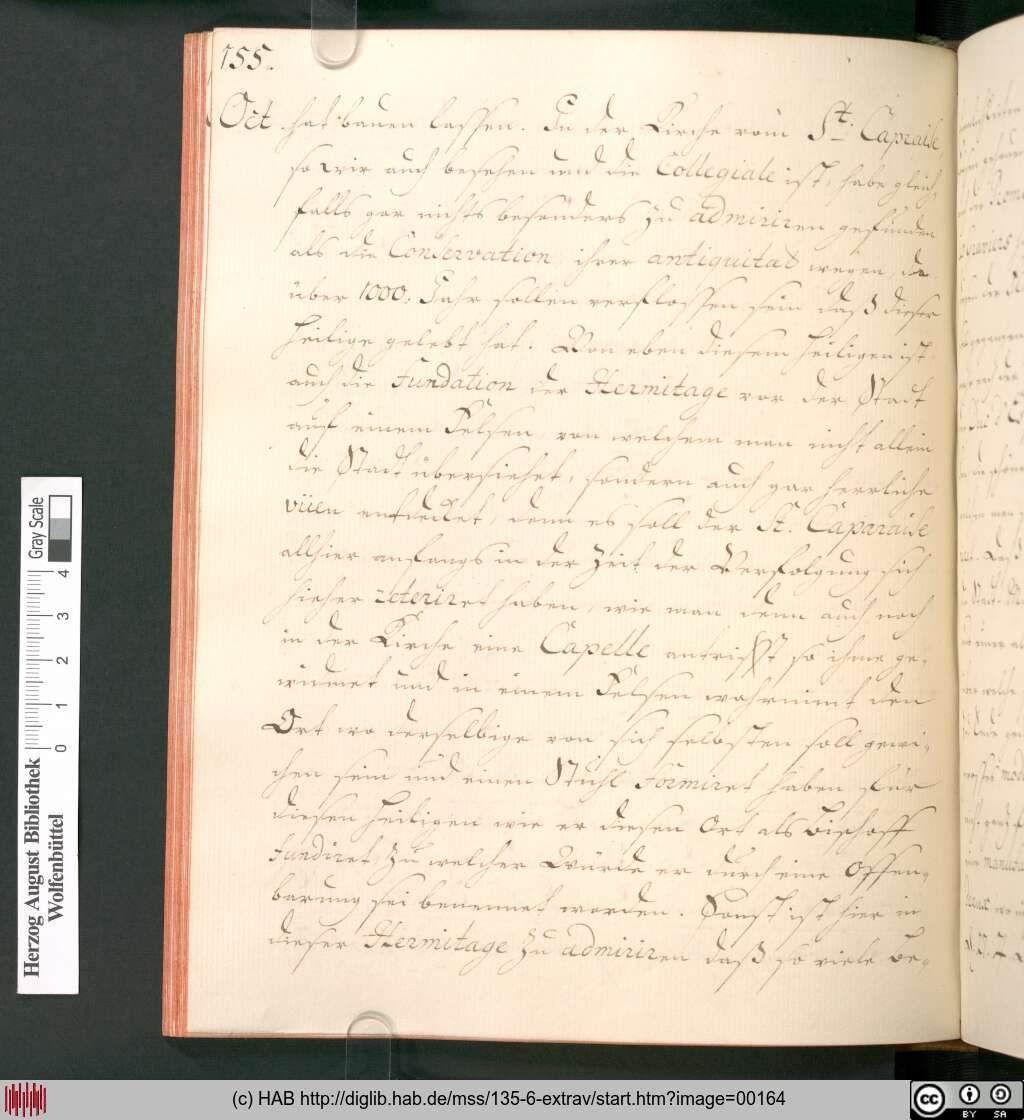 155.
Oct. hat bauen lassen. In der Kirche vom St. Capraise,
so wir auch besehen und die Collegiale ist, habe gleich
falls gar nichts besonders zu admiriren gefunden
als die Conservation ihrer antiquitat wegen, da
über 1000. Jahr sollen verflossen sein daß dieser
Heilige gelebt hat. Von eben diesem Heiligen ist
auch die Fundation der Hermitage vor der Stadt
auf einem Felsen, von welchem man nicht allein
die Stadt übersiehet, sondern auch gar herrliche
vüen entdecket, denn es soll der St. Caparaise
allhier anfangs in der Zeit der Verfolgung sich
hieher reteriret haben, wie man denn auch noch
in der Kirche eine Capelle antrifft so ihme ge-
widmet und in einem Felsen wahrnimt den
Ort wo derselbige von sich selbsten soll gewi-
chen sein und einen Stuhl formiret haben für
diesen Heiligen wie er diesen Ort als Bischoff
fundiret, zu welcher Würde er durch eine Offen-
barung sei benennet worden. Sonst ist hier in
dieser Hermitage zu admiriren daß so viele be-
Herzog August Bibliothek
Wolfenbüttel
0 1 2 3 4
Gray Scale
(c) HAB http://diglib.hab.de/mss/135-6-extrav/start.htm?image=00164
cc BY SA